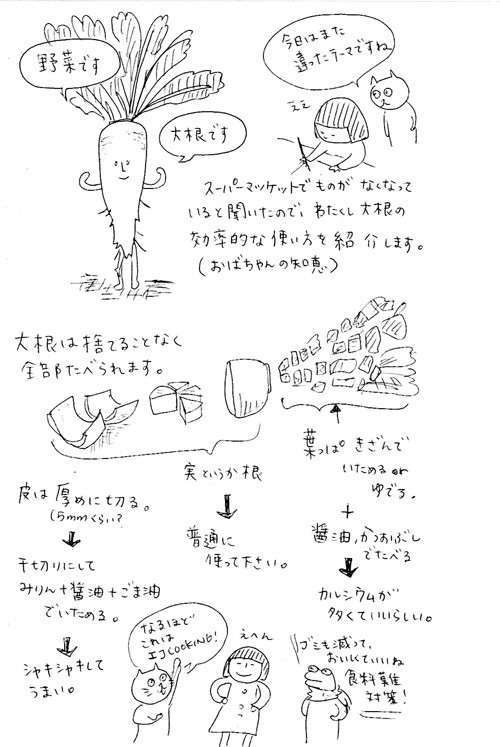 野菜です
大根です
今日はまた
違ったテーマですね
ええ
スーパーマッケットでものが なくなって
いると聞いたので、わたくし大根の
効率的な使い方を紹介します。
(おばちゃんの知恵)
大根は捨てることなく
全部たべられます。
実というか根
普通に
使って下さい。
皮は厚めに切る。
(5mmくらい?
千切りにして
みりん+醤油+ごま油
でいためる。
シャキシャキして
うまい。
葉っぱ きざんで
いためる or
ゆでる。
+
醤油、かつおぶし
でたべる
カルシウムが
多くていいらしい。
なるほど
これは
エコCOOKING!
えへん
ゴミも減って、
おいしくていいね
食料難
対策!